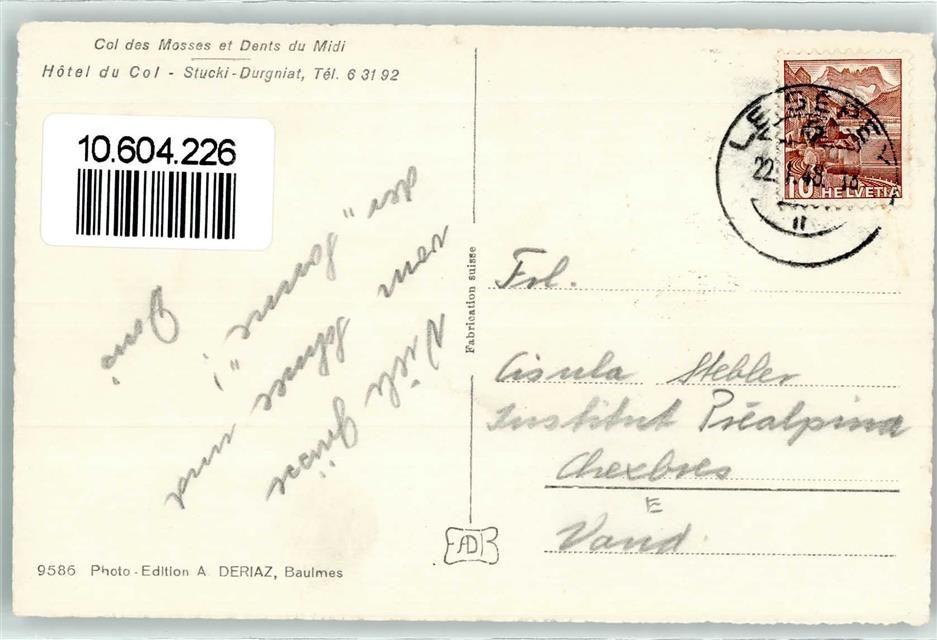 Col des Mosses et Dents du Midi
Hôtel du Col - Stucki-Durgniat, Tél. 6 31 92
10.604.226
Viele Grüsse
vom Schnee und
der "Sonne"!
Fabrication suisse
10 HELVETIA
LE SÉPEY
22.
48.
Frl.
Cisula Stebler
Institut Préalpina
Chexbres
E
Vaud
AD
9586 Photo-Edition A. DERIAZ, Baulmes